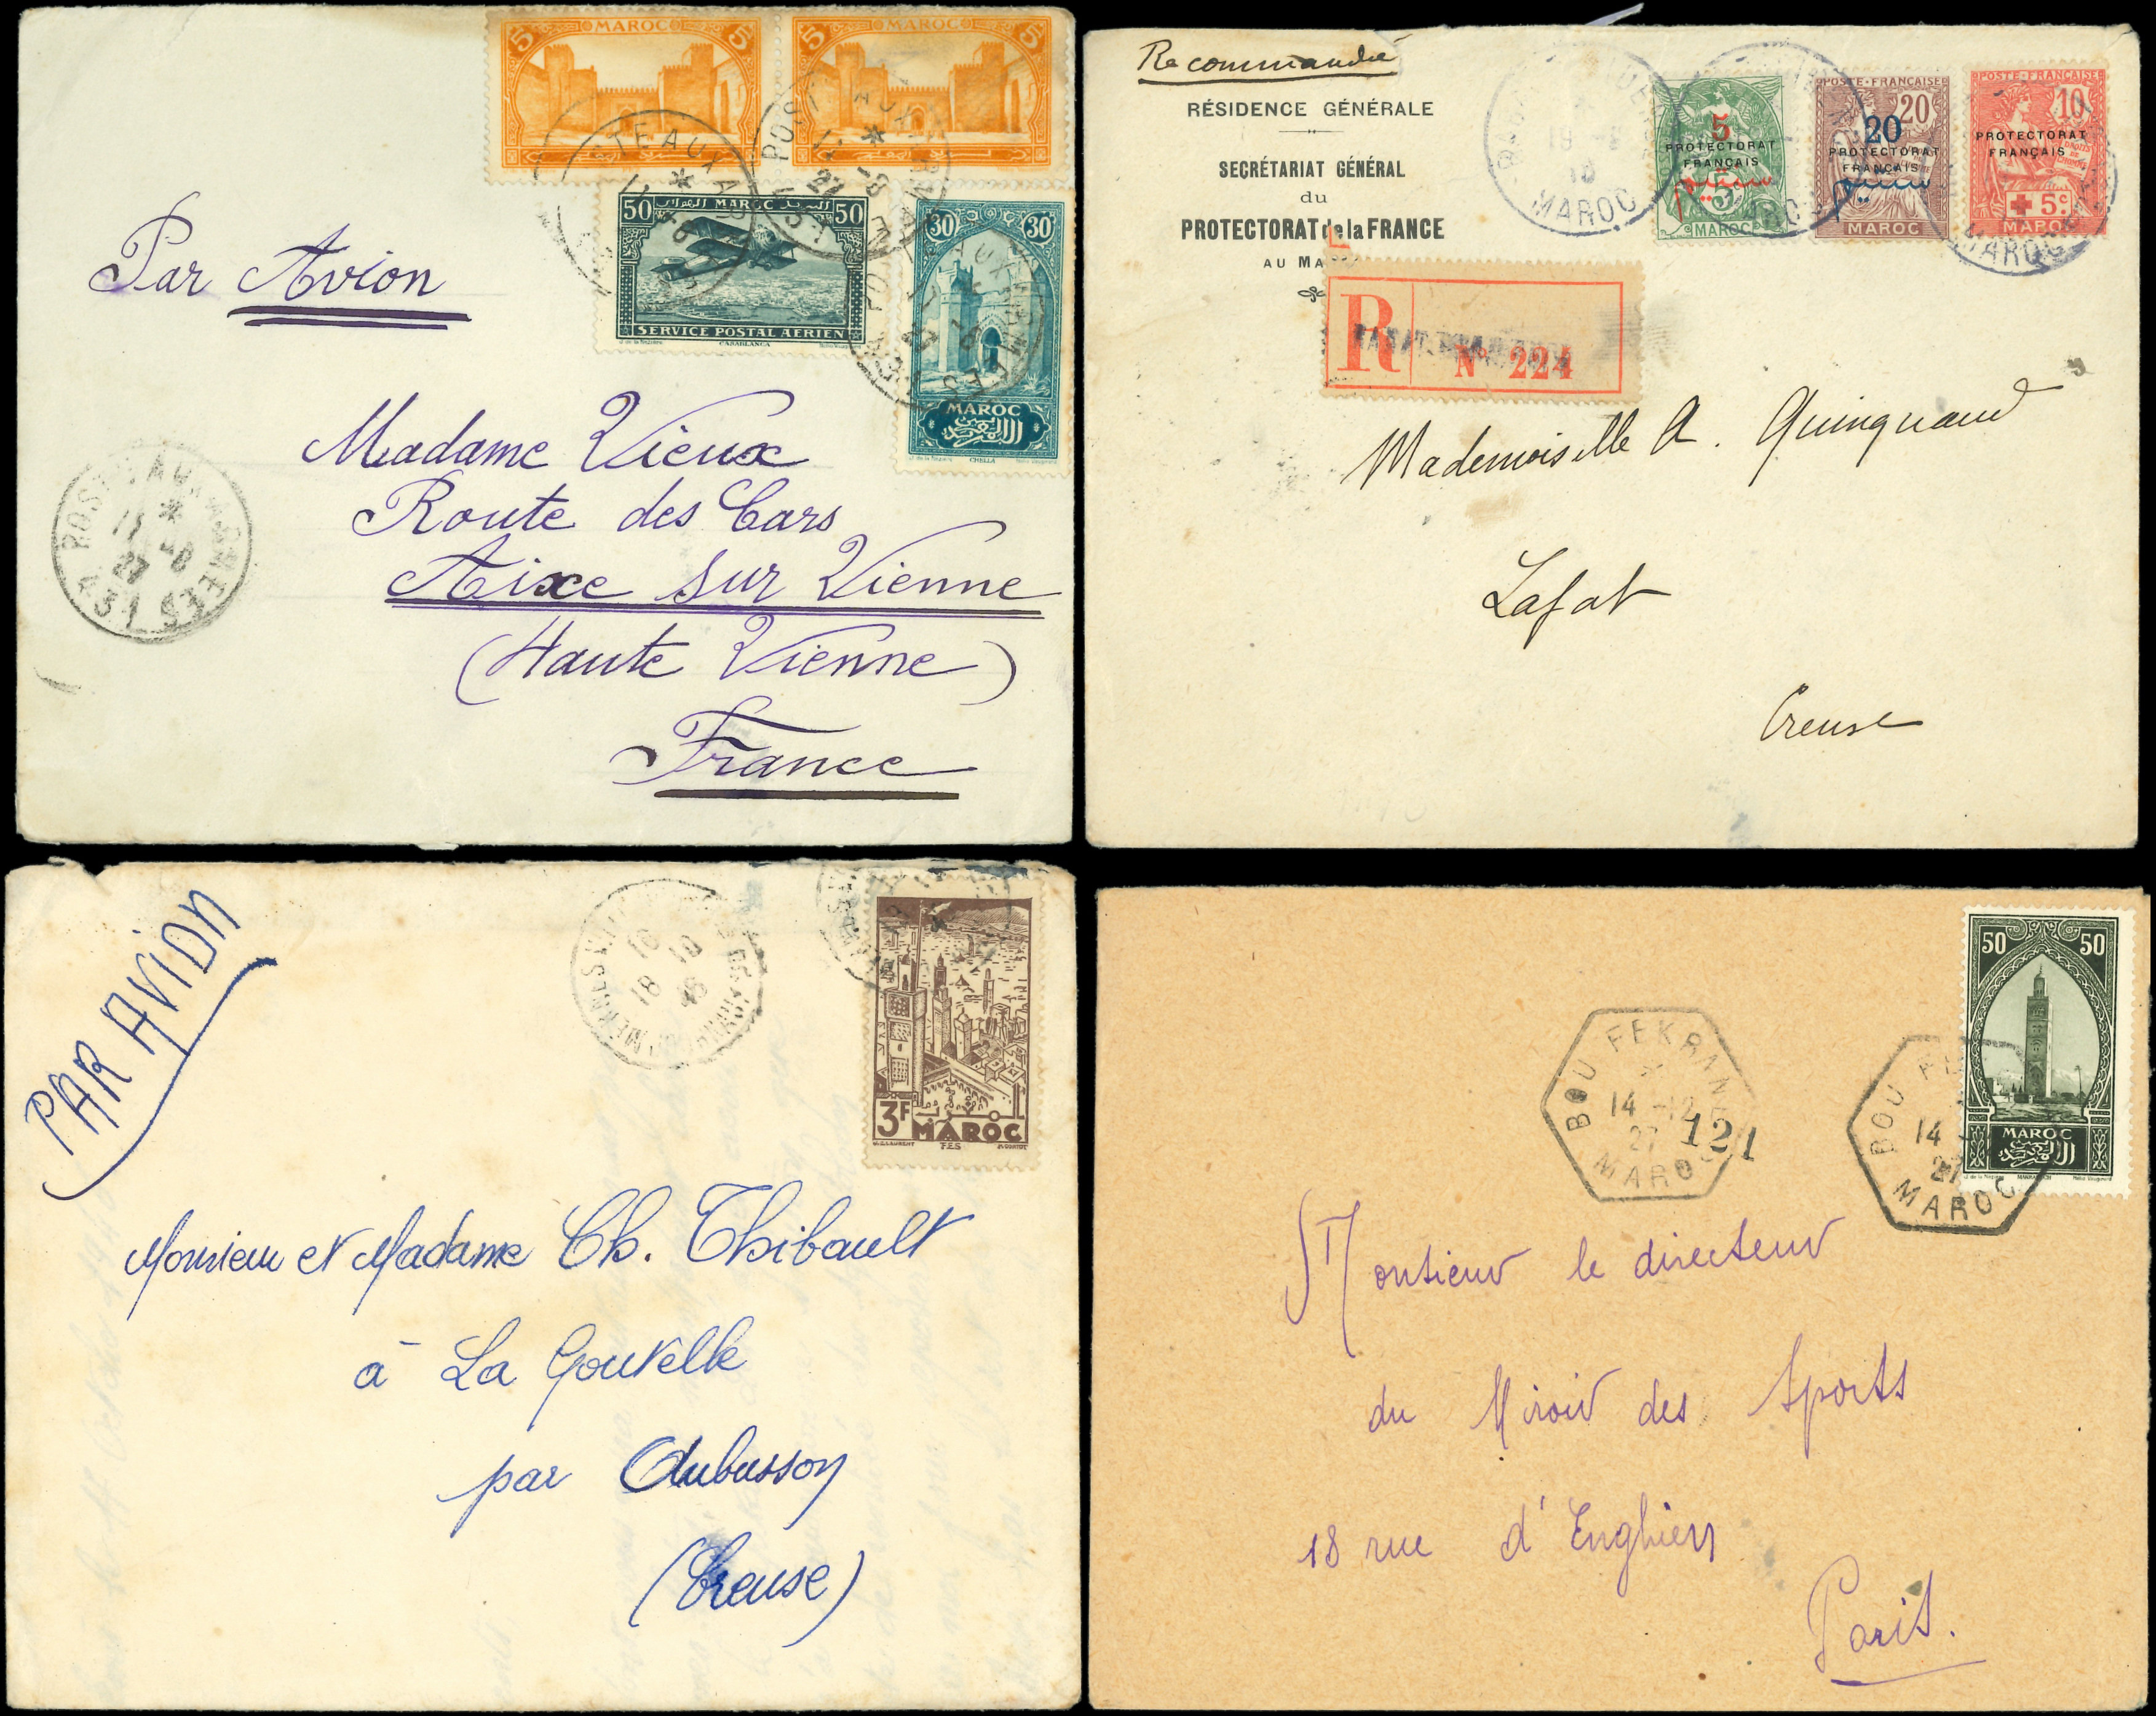 5 MAROC 5
5 MAROC 5
50 MAROC 50
SERVICE POSTAL AÉRIEN
CASABLANCA
30 30
MAROC
CHELLA
POSTES AUX ARMEES
11 -8
27
431
Par Avion
Madame Vieux
Route des Cars
Aixe sur Vienne
(Haute Vienne)
France
Recommandée
RÉSIDENCE GÉNÉRALE
SECRÉTARIAT GÉNÉRAL
du
PROTECTORAT de la FRANCE
AU MA
MAROC
POSTE FRANÇAISE
5
PROTECTORAT
FRANÇAIS
MAROC
POSTE FRANÇAISE
20
20
PROTECTORAT
FRANÇAIS
MAROC
POSTE FRANÇAISE
10
PROTECTORAT
FRANÇAIS
+ 5c
MAROC
MAROC
R
Nº 224
Mademoiselle A. Quinquaud
Lafat
Creuse
PAR AVION
18 10
18 48
3F MAROC
FES
Monsieur et Madame Ch. Thibault
à La Gouvelle
par Aubusson
(Creuse)
50 50
MAROC
BOU FEKRANE
14 -12
27
MAROC
121
BOU FE
14
27
MAROC
Monsieur le directeur
du Miroir des Sports
18 rue d'Enghien
Paris.